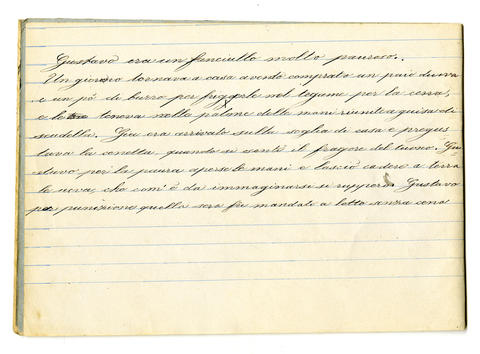 Gustavo era un fanciullo molto pauroso.
Un giorno tornava a casa avendo comprato un paio d'uova
e un pò di burro per friggerle nel tegame per la cena,
e le teneva nelle palme delle mani riunite a guisa di
scodella. Già era arrivato sulla soglia di casa e pregus
tava la cenetta, quando si sentì il fragore del tuono. Gu
stavo per la paura aperse le mani e lasciò cadere a terra
le uova, che com'è da immaginarsi si ruppero. Gustavo
per punizione quella sera fu mandato a letto senza cena